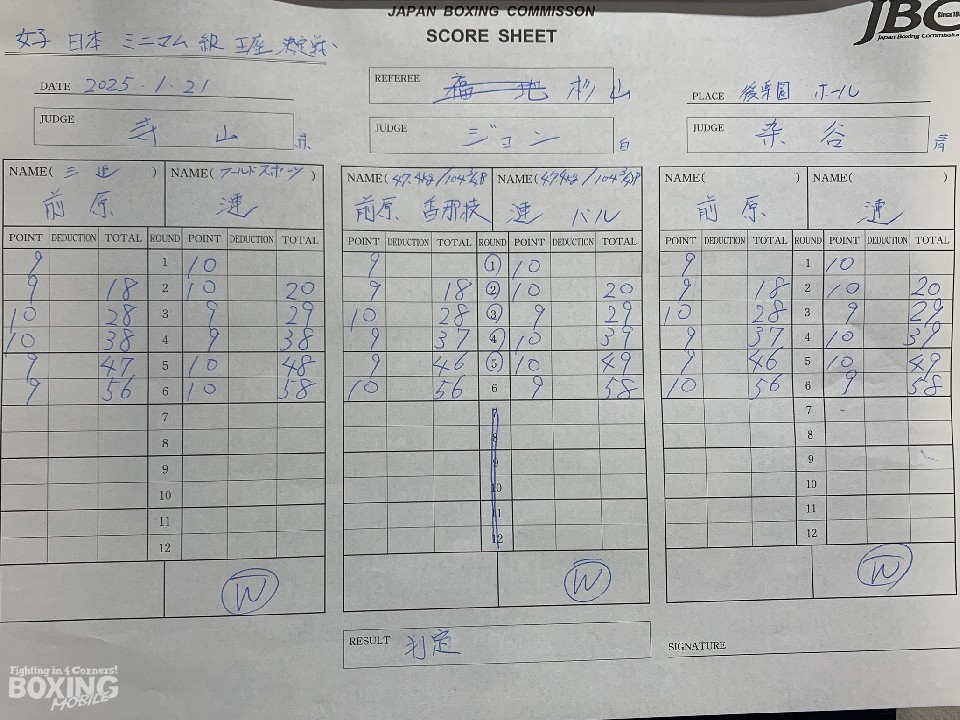 JAPAN BOXING COMMISSON
SCORE SHEET
JBC Since195
Japan Boxing Commission
女子 日本 ミニマム級 王座 決定戦
DATE 2025.1.21
REFEREE 福地 杉山
PLACE 後楽園 ホール
JUDGE 寺山 赤
JUDGE ジョン 白
JUDGE 染谷 青
NAME( 三迫 ) NAME( ワールドスポーツ ) NAME( 47.4kg/104 1/2P NAME( 47.4kg/104 1/2P NAME( ) NAME( )
前原 漣 前原 香那枝 漣 バル 前原 漣
POINT DEDUCTION TOTAL ROUND POINT DEDUCTION TOTAL POINT DEDUCTION TOTAL ROUND POINT DEDUCTION TOTAL POINT DEDUCTION TOTAL ROUND POINT DEDUCTION TOTAL
9 1 10 9 1 10 9 1 10
9 18 2 10 20 9 18 2 10 20 9 18 2 10 20
10 28 3 9 29 10 28 3 9 29 10 28 3 9 29
10 38 4 9 38 9 37 4 10 39 9 37 4 10 39
9 47 5 10 48 9 46 5 10 49 9 46 5 10 49
9 56 6 10 58 10 56 6 9 58 10 56 6 9 58
7 7 7
8 8 8
9 9 9
10 10 10
11 11 11
12 12 12
W W W
RESULT 判定
SIGNATURE
Fighting in 4 Corners!
BOXING
MOBILE